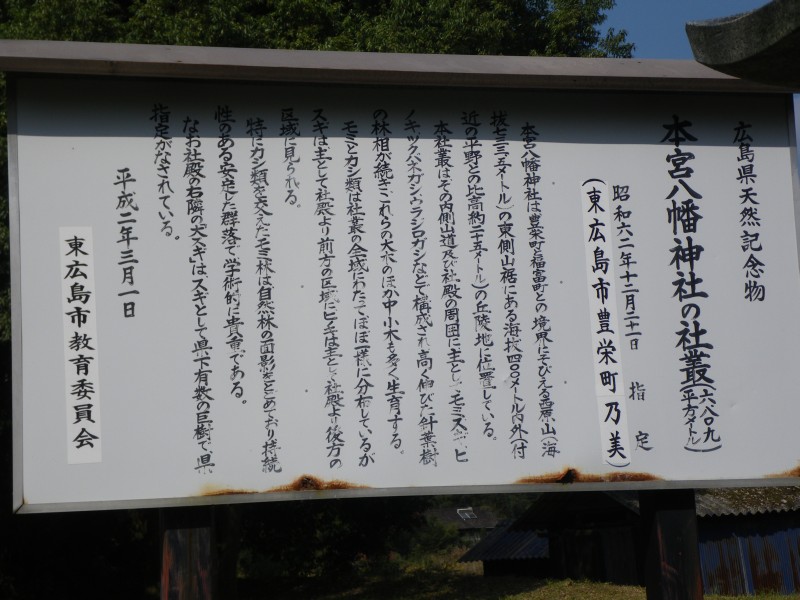 広島県天然記念物
本宮八幡神社の社叢(六八〇九平方メートル)
昭和六二年十二月二一日 指定
(東広島市豊栄町乃美)
本宮八幡神社は豊栄町と福富町との境界にそびえる西原山(海
抜七三一・五メートル)の東側山裾にある海抜四〇〇メートル内外付
近の平野との比高約二十五メートル)の丘陵地に位置している。
本社叢はその内側山道及び社殿の周囲に主としてモミ、スギ、ヒ
ノキ、ツクバネガシ、ウラジロガシなどで構成され高く伸びた針葉樹
の林相が続き、これらの大木のほか中小木も多く生育する。
モミとカシ類は社叢の全域にわたってほぼ一様に分布しているが
スギは主として社殿より前方の区域にヒノキは主として社殿より後方の
区域に見られる。
特にカシ類を交えたモミ林は自然林の面影をとどめており持続
性のある安定した群落で学術的に貴重である。
なお社殿の右隣の「大スギ」はスギとして県下有数の巨樹で県
指定がなされている。
平成二年三月一日
東広島市教育委員会